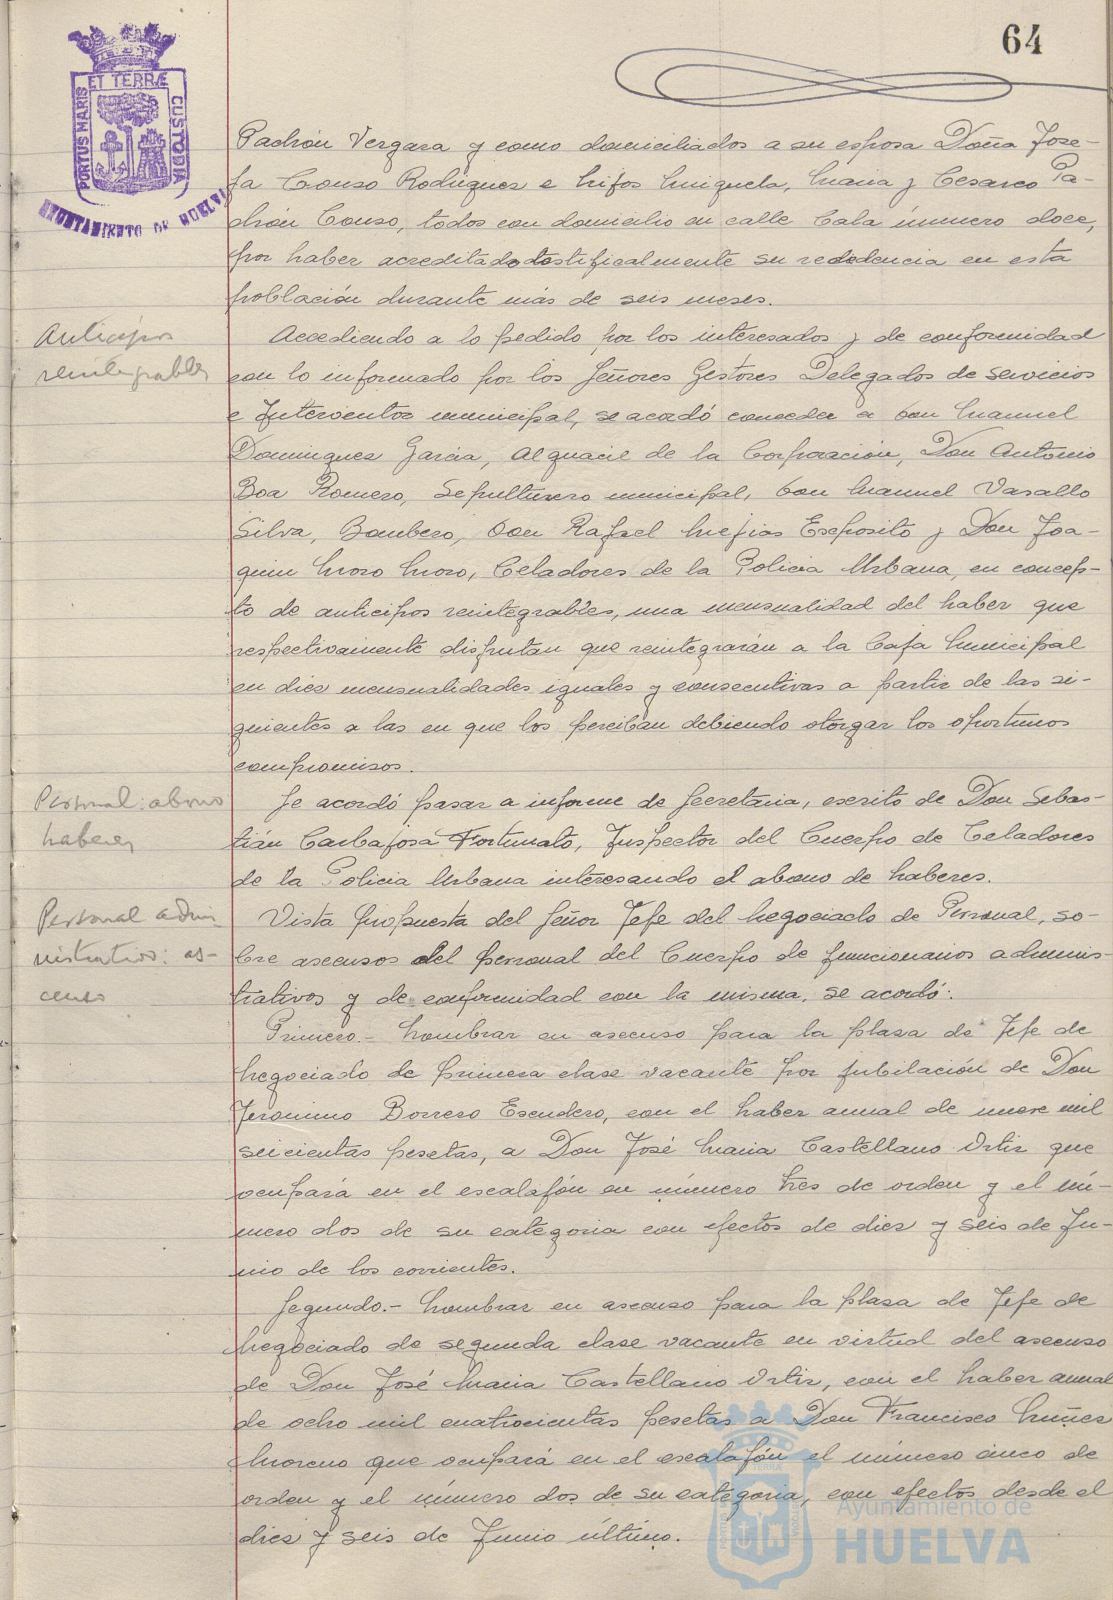 64
PORTUS MARIS ET TERRÆ CUSTODIA
AYUNTAMIENTO DE HUELVA
Padrón Vergara y como domiciliados a su esposa Doña Jose-
fa Couso Rodríguez e hijos Miquela, María y Cesareo Pa-
drón Couso, todos con domicilio en calle Cala número doce,
por haber acreditado testificalmente su residencia en esta
población durante más de seis meses.
Anticipos
reintegrables
Accediendo a lo pedido por los interesados y de conformidad
con lo informado por los Señores Gestores Delegados de servicios
e Interventor municipal, se acordó conceder a Don Manuel
Dominguez Garcia, Alguacil de la Corporación, Don Antonio
Boa Romero, Sepulturero municipal, Don Manuel Vasallo
Silva, Bombero, Don Rafael Mejias Esposito y Don Joa-
quin Moro Moro, Celadores de la Policia Urbana, en concep-
to de anticipos reintegrables, una mensualidad del haber que
respectivamente disfrutan que reintegrarán a la Caja Municipal
en diez mensualidades iguales y consecutivas a partir de las si-
guientes a las en que los perciban debiendo otorgar los oportunos
compromisos.
Personal: abono
haberes
Se acordó pasar a informe de Secretaria, escrito de Don Sebas-
tián Carbajosa Fortunato, Inspector del Cuerpo de Celadores
de la Policia Urbana interesando el abono de haberes.
Personal admi
nistrativo: as-
censo
Vista propuesta del Señor Jefe del Negociado de Personal, so-
bre ascensos del personal del Cuerpo de funcionarios adminis-
trativos y de conformidad con la misma, se acordó:
Primero.- Nombrar en ascenso para la plaza de Jefe de
Negociado de primera clase vacante por jubilación de Don
Jeronimo Borrero Escudero, con el haber anual de nueve mil
seicientas pesetas, a Don José Maria Castellano Ortiz que
ocupará en el escalafón en número tres de orden y el nú-
mero dos de su categoria con efectos de diez y seis de Ju-
nio de los corrientes.
Segundo.- Nombrar en ascenso para la plaza de Jefe de
Negociado de segunda clase vacante en virtud del ascenso
de Don José Maria Castellano Ortiz, con el haber anual
de ocho mil cuatrocientas pesetas a Don Francisco Nuñez
Moreno que ocupará en el escalafón el número cinco de
orden y el número dos de su categoria, con efectos desde el
diez y seis de Junio último.
Ayuntamiento de
HUELVA